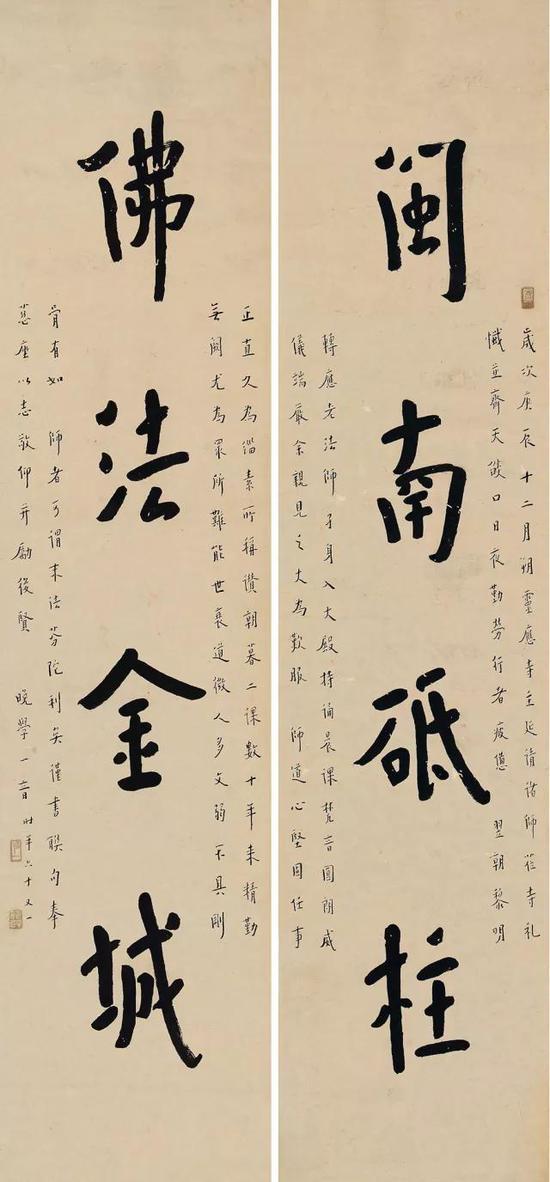 歲次庚辰十二月朔靈應寺主延請諸師莅寺礼
懺並齊天燄口日夜勤勞行者疲憊 翌朝黎明
閩南砥柱
轉應老法師孑身入大殿持誦晨課梵音圓朗威
儀端嚴余親見之大為歎服 師道心堅固任事
正直久為緇素所稱讚朝暮二課數十年来精勤
無闕尤為眾所難能世衰道微人多文弱不具剛
佛法金城
骨有如 師者可謂末法芬陀利矣謹書聯句奉
慈座以志敬仰并勵後賢 晚學一音時年六十又一